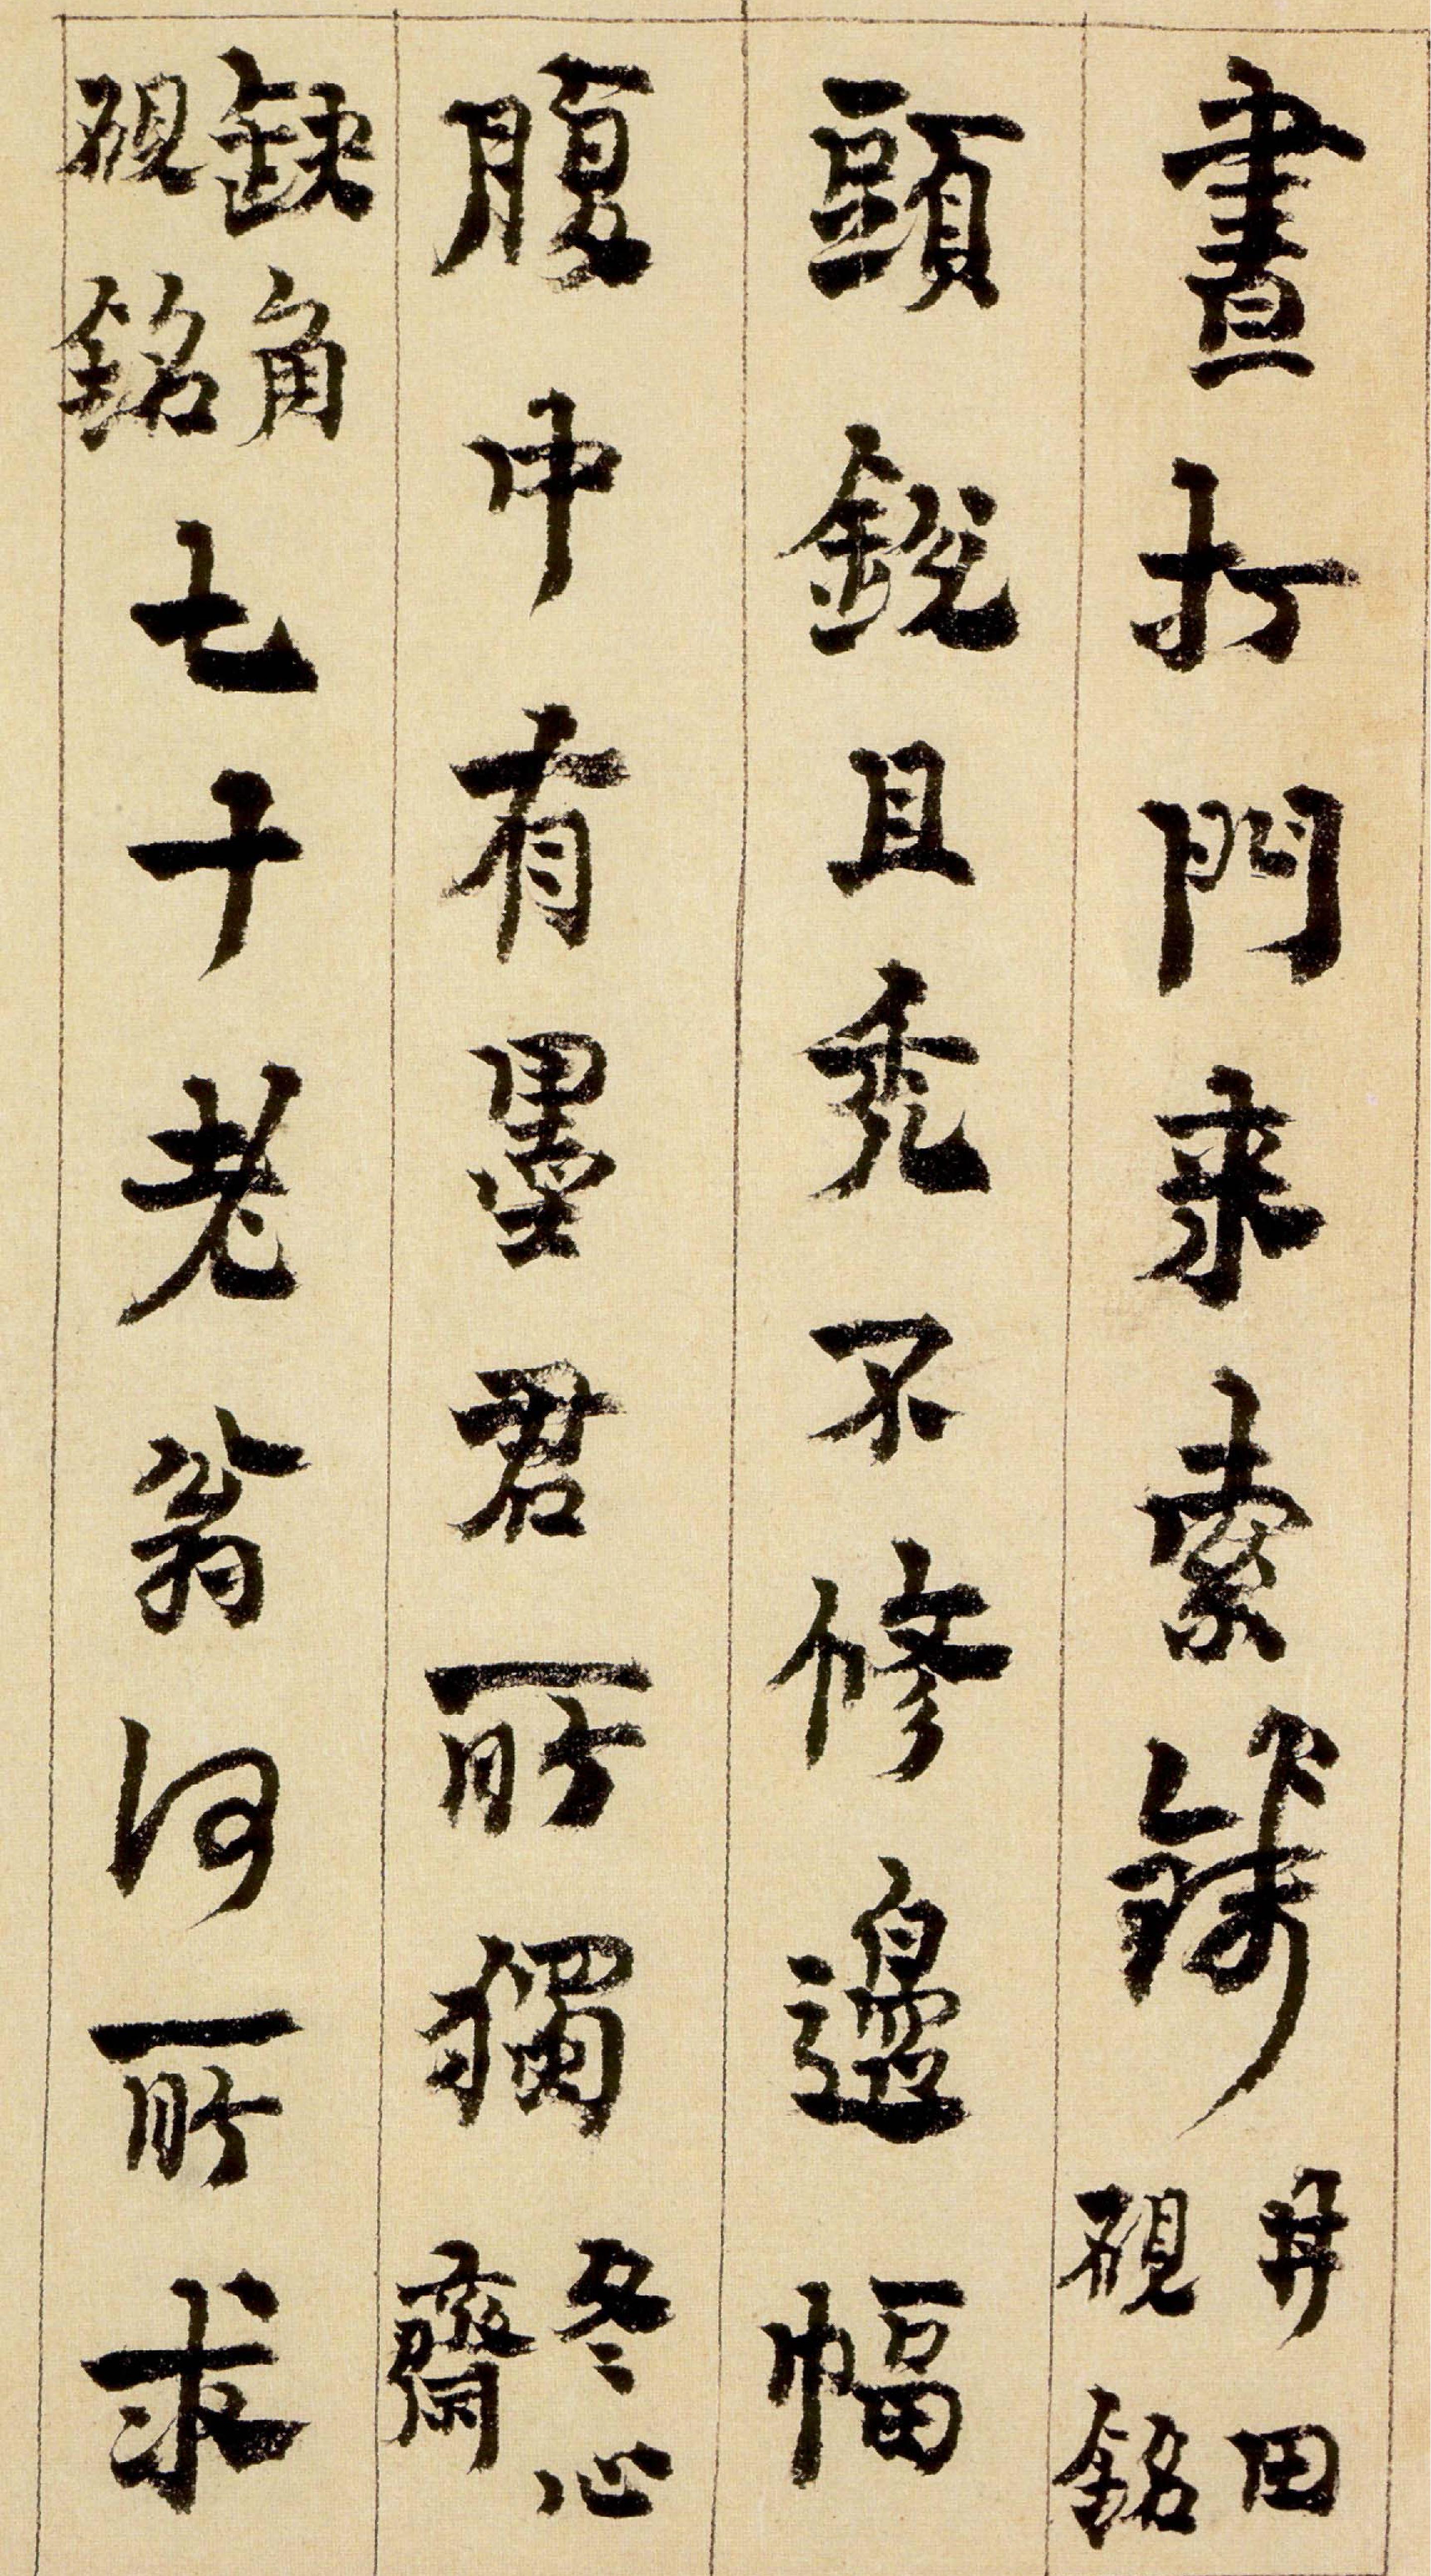 晝打門來索錢井田硯銘
頭銳且秃不修邊幅
腹中有墨君所獨冬心齋
缺角硯銘七十老翁何所求